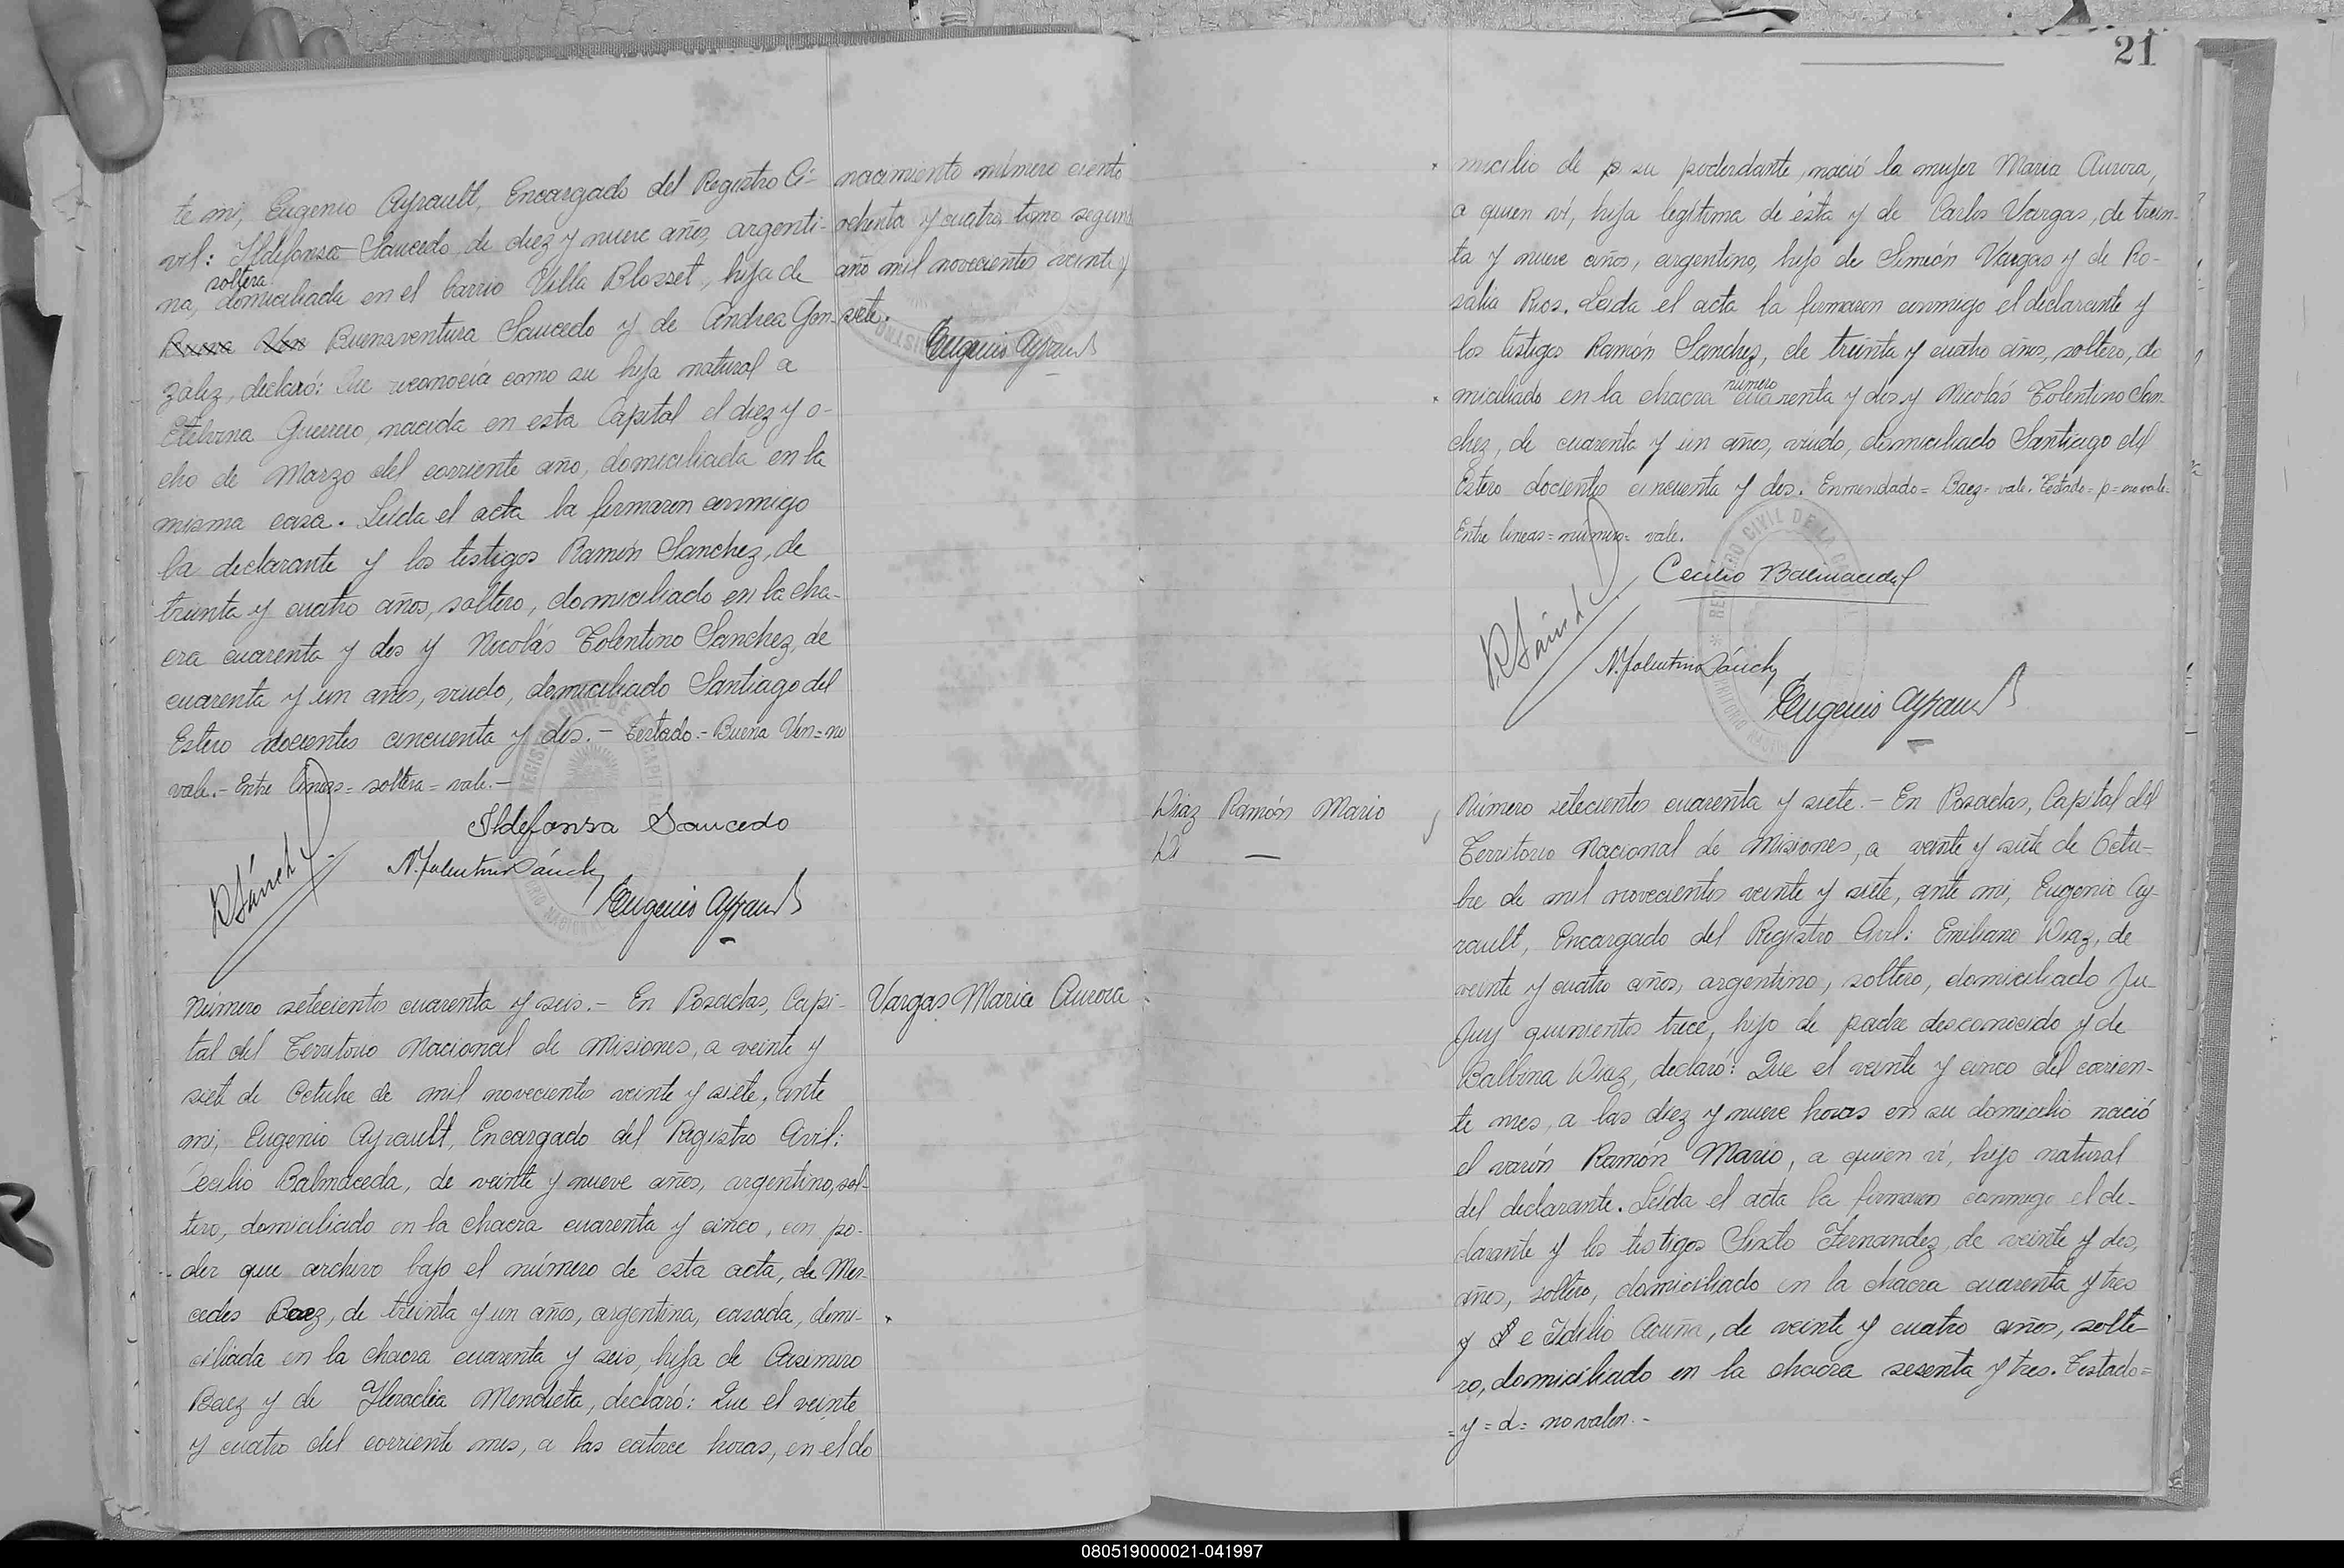 te mi, Eugenio Ayrault, Encargado del Registro Ci-
vil: Ildefonsa Saucedo, de diez y nueve años, argenti-
soltera
na, domiciliada en el barrio Villa Blosset, hija de
Buena Ven Buenaventura Saucedo y de Andrea Gon-
zález, declaró: Que reconocía como su hija natural a
Etelvina Guerrero, nacida en esta Capital el diez y o-
cho de Marzo del corriente año, domiciliada en la
misma casa. Leída el acta la firmaron conmigo
la declarante y los testigos Ramón Sanchez, de
treinta y cuatro años, soltero, domiciliado en la cha-
cra cuarenta y dos y Nicolás Tolentino Sanchez, de
cuarenta y un años, viudo, domiciliado Santiago del
Estero docientos cincuenta y dos.- Testado.- Buena Ven=no
vale.- Entre lineas= soltera= vale.-
Ildefonsa Saucedo
R Sánchez
N. Tolentino Sánchez
Eugenio Ayrault
nacimiento número ciento
ochenta y cuatro, tomo segun
año mil novecientos veinte y
siete.
Eugenio Ayrault
Número setecientos cuarenta y seis.- En Posadas, Capi-
tal del Territorio Nacional de Misiones, a veinte y
siete de Octubre de mil novecientos veinte y siete, ante
mi, Eugenio Ayrault, Encargado del Registro Civil:
Cecilio Balmaceda, de veinte y nueve años, argentino, sol-
tero, domiciliado en la chacra cuarenta y cinco, con po-
der que archivo bajo el número de esta acta, de Mer-
cedes Baez, de treinta y un años, argentina, casada, domi-
ciliada en la chacra cuarenta y seis, hija de Casimiro
Baez y de Heraclia Mendieta, declaró: Que el veinte
y cuatro del corriente mes, a las catorce horas, en el do
Vargas Maria Aurora
21
micilio de p su poderdante, nació la mujer Maria Aurora,
a quien ví, hija legítima de ésta y de Carlos Vargas, de trein-
ta y nueve años, argentino, hijo de Simeón Vargas y de Ro-
salia Rios. Leida el acta la firmaron conmigo el declarante y
los testigos Ramón Sanchez, de treinta y cuatro años, soltero, do
número
miciliado en la chacra cuarenta y dos y Nicolás Tolentino San-
chez, de cuarenta y un años, viudo, domiciliado Santiago del
Estero docientos cincuenta y dos. Enmendado= Baez= vale. Testado= p= no vale.
Entre lineas= número= vale.
Cecilio Balmaceda
R Sánchez
N. Tolentino Sánchez
Eugenio Ayrault
Diaz Ramón Mario
D
Número setecientos cuarenta y siete.- En Posadas, Capital del
Territorio Nacional de Misiones, a veinte y siete de Octu-
bre de mil novecientos veinte y siete, ante mi, Eugenio Ay-
rault, Encargado del Registro Civil: Emiliano Diaz, de
veinte y cuatro años, argentino, soltero, domiciliado Ju
juy quinientos trece, hijo de padre desconocido y de
Balbina Diaz, declaró: Que el veinte y cinco del corrien-
te mes, a las diez y nueve horas en su domicilio nació
el varón Ramón Mario, a quien ví, hijo natural
del declarante. Leída el acta la firmaron conmigo el de-
clarante y los testigos Sixto Fernandez, de veinte y dos,
años, soltero, domiciliado en la chacra cuarenta y tres
y d e Idilio Acuña, de veinte y cuatro años, solte-
ro, domiciliado en la chacra sesenta y tres. Testado=
=y=d= no valen.-
080519000021-041997